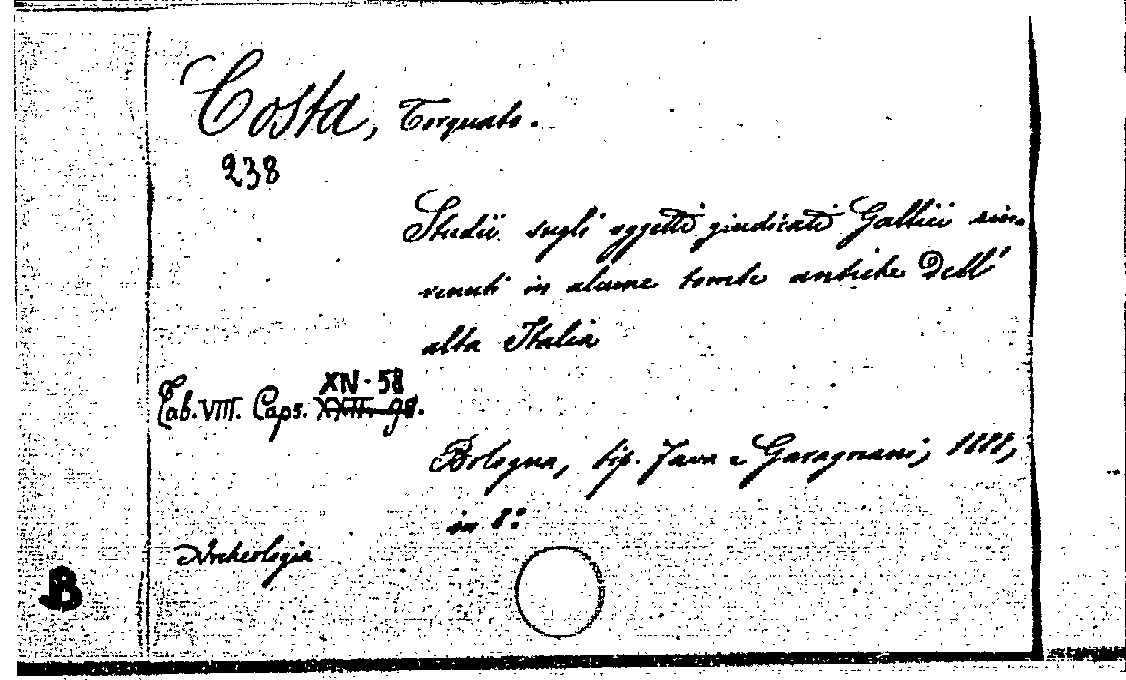 Costa, Torquato.
238
Studii sugli oggetti giudicati Gallici rin-
venuti in alcune tombe antiche dell'
alta Italia
XIV-58
Tab. VIII. Caps. XXIII. 98.
Bologna, tip. Fava e Garagnani, 1888,
in 8º
Archeologia
B